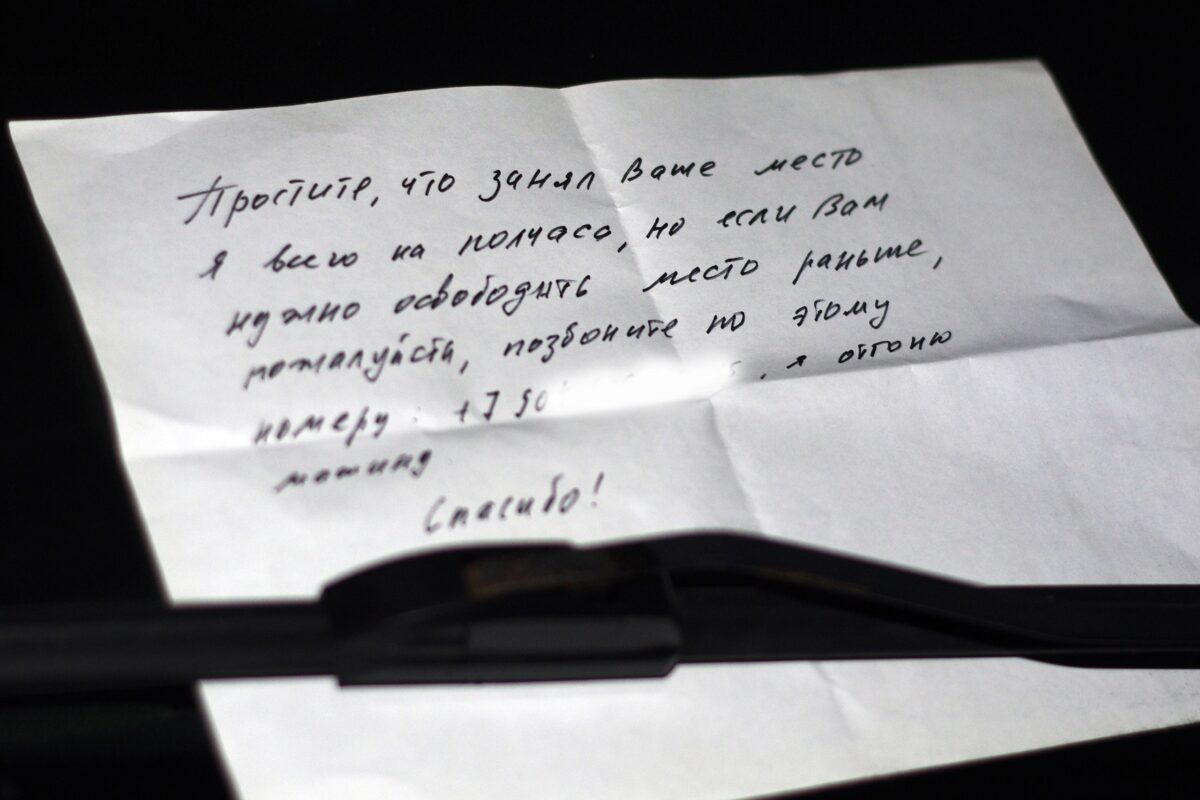 Простите, что занял Ваше место
Я всего на полчаса, но если Вам
нужно освободить место раньше,
пожалуйста, позвоните по этому
номеру: +7 90 , я отгоню
машину
Спасибо!